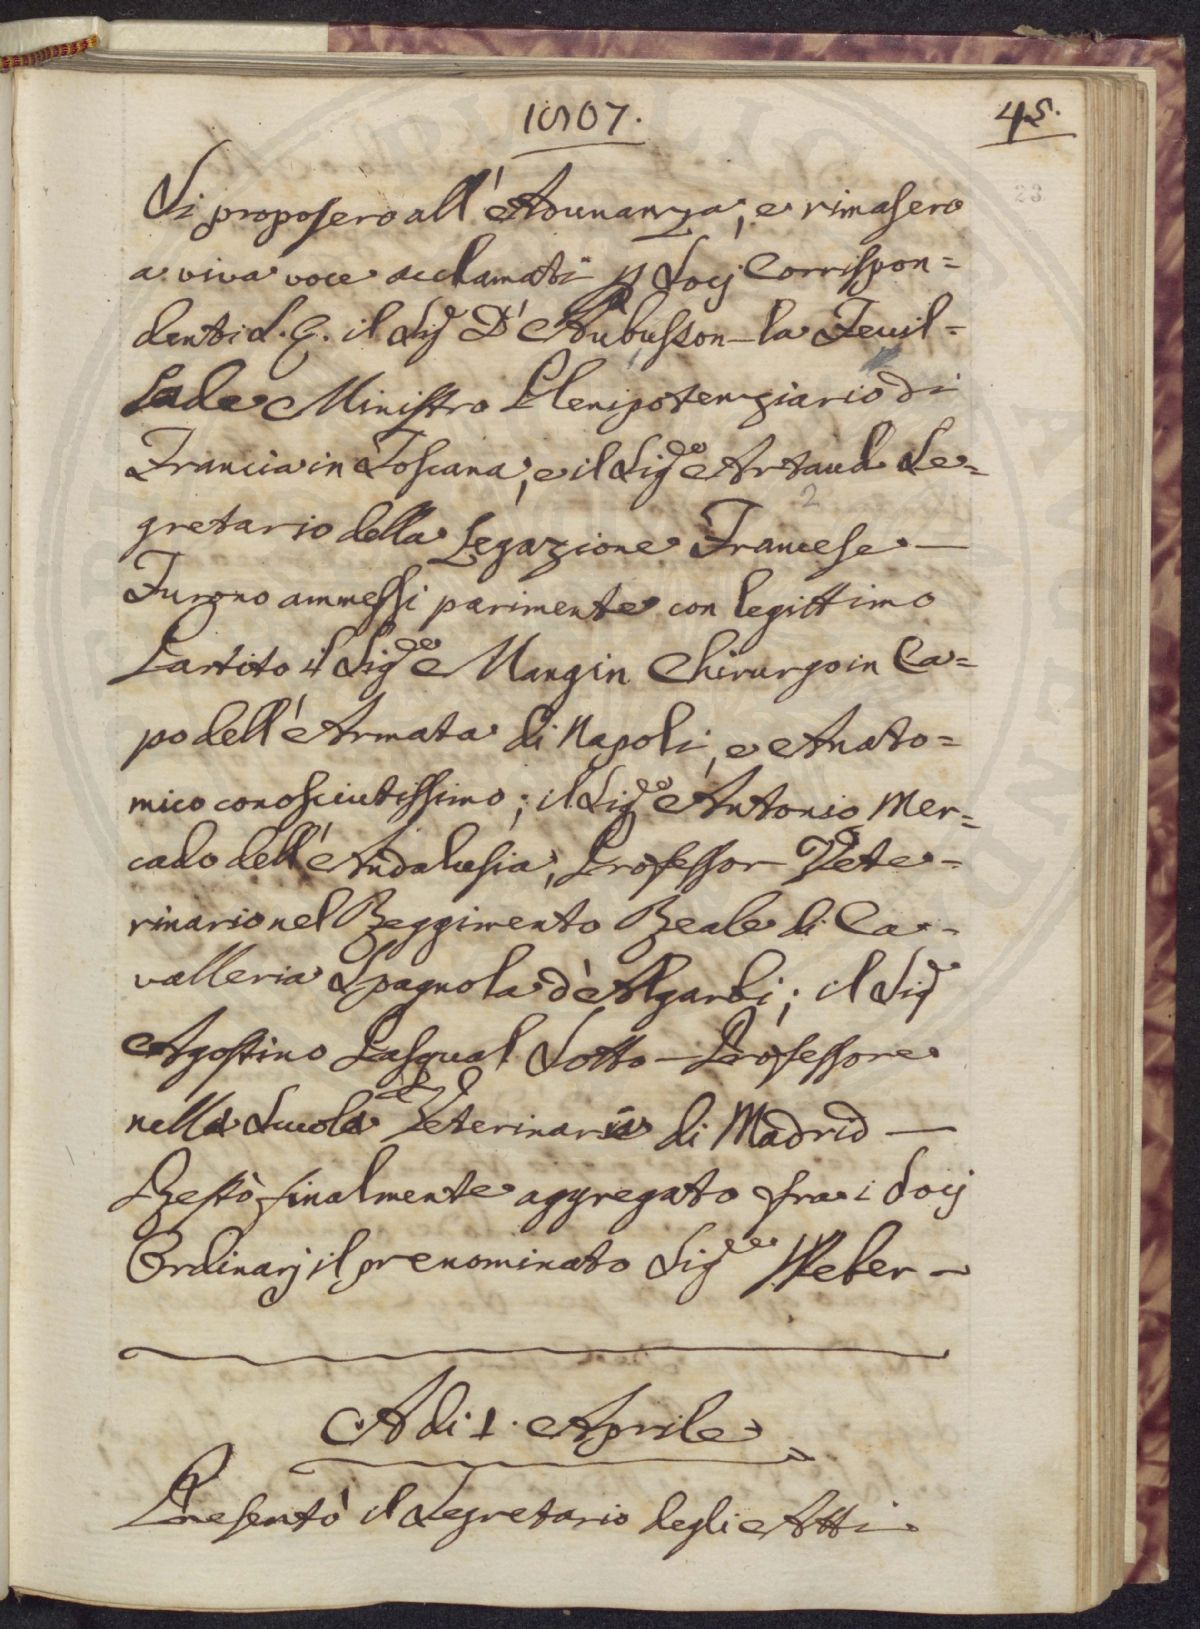 1807.
45.
23
Si proposero all'Adunanza, e rimasero
a viva voce acclamati p Socj Corrispon=
denti S. E. il Sig.r D'Aubusson-la Feuil=
lade Ministro Plenipotenziario di
Francia in Toscana, e il Sig.re Artaud Se=
gretario della Legazione Francese —
2
Furono ammessi parimente con legittimo
Partito il Sig.re Mangin Chirurgo in Ca=
po dell'Armata di Napoli, e Anato=
mico conosciutissimo; il Sig.re Antonio Mer=
cado dell'Andalusia, Professor Vete=
rinario nel Reggimento Reale di Ca=
valleria Spagnola d'Algarbi; il Sig.r
Agostino Pasqual Sotto-Professore
nella Scuola Veterinaria di Madrid —
Restò finalmente aggregato fra i Socj
Ordinarj il prenominato Sig.re Weber —
A di 1. Aprile
Presentò il Segretario degli Atti